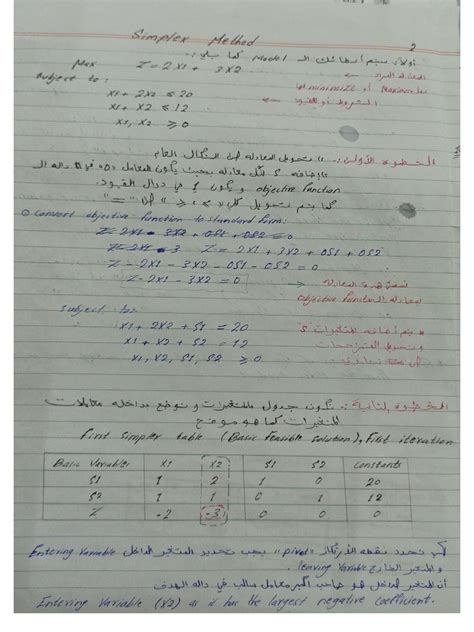 Simplex Method
2
أولاً، سيتم إعطائك الـ Model كما يلي:
Max Z = 2x1 + 3x2
subject to:
x1 + 2x2 ≤ 20
x1 + x2 ≤ 12
x1, x2 ≥ 0
minimize أو maximize
الشروط أو القيود
الخطوة الأولى: تحويل المعادلة إلى الشكل العام
بإضافة S لكل معادلة بحيث يكون المعامل «0» في دالة الـ
objective function ويكون 1 في دوال القيود.
كما يتم تحويل كل > ، < إلى "="
① convert objective function to standard form:
Z - 2x1 - 3x2 + 0S1 + 0S2 = 0
Z - 2x1 - 3 Z = 2x1 + 3x2 + 0S1 + 0S2
Z - 2x1 - 3x2 - 0S1 - 0S2 = 0
Z - 2x1 - 3x2 = 0
المعادلة
objective function
subject to:
x1 + 2x2 + S1 = 20
x1 + x2 + S2 = 12
x1, x2, S1, S2 ≥ 0
يتم إضافة المتغيرات S
وتحويل المتراجحات
الخطوة الثانية: نكون جدول بالمتغيرات ونوضع بداخله معاملات
المتغيرات كما هو موضح
First simplex table (Basic Feasible solution), First iteration
Basic Variables x1 x2 S1 S2 Constants
S1 1 2 1 0 20
S2 1 1 0 1 12
Z -2 -3 0 0 0
تحدد نقطة الارتكاز «pivot» يجب تحديد المتغير الداخل Entering variable
والمتغير الخارج leaving variable.
المتغير الداخل هو صاحب أكبر معامل سالب في دالة الهدف
Entering variable (x2) as it has the largest negative coefficient.